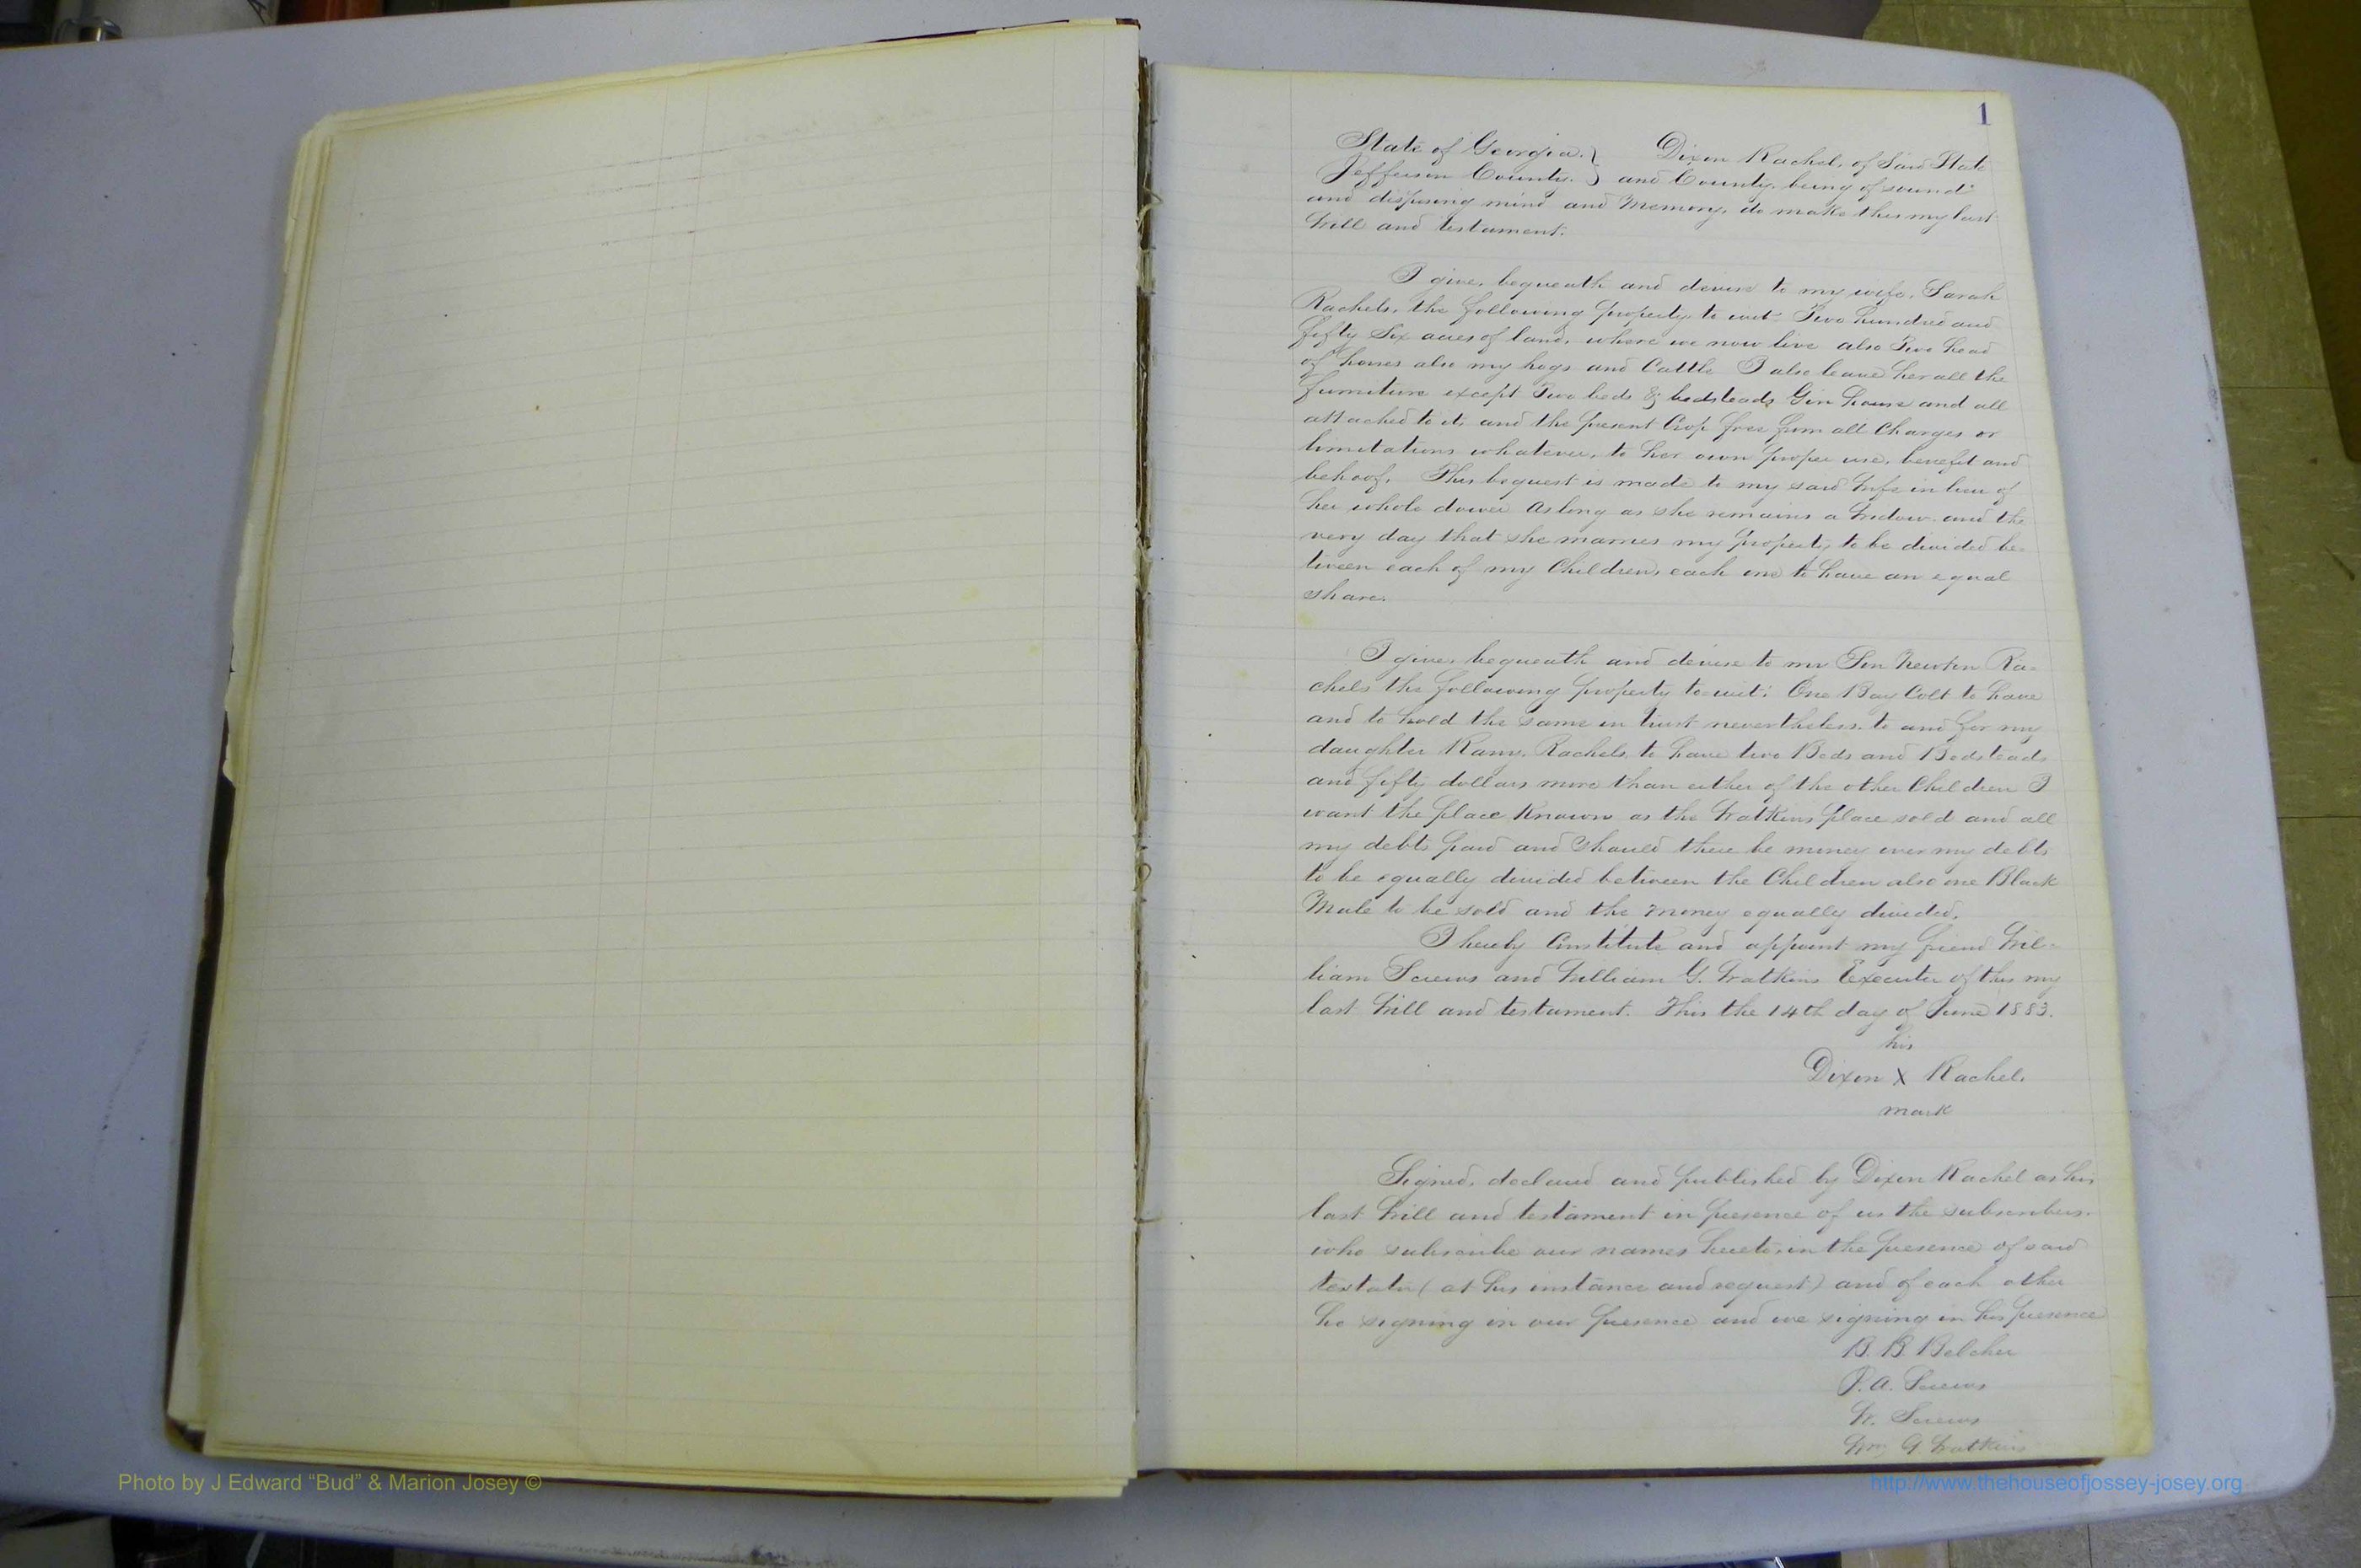 1
State of Georgia. } Dixon Rachel, of Said State
Jefferson County. } and County, being of sound
and disposing mind and Memory, do make this my last
Will and testament.
I give, bequeath and devise to my wife, Sarah
Rachels, the following property to wit: Two hundred and
fifty Six acres of land, where we now live also Two head
of horses also my hogs and Cattle I also leave her all the
furniture except Two beds & bedsteads Gin house and all
attached to it, and the present Crop free from all Charges or
limitations whatever, to her own proper use, benefit and
behoof. This bequest is made to my said Wife in lieu of
her whole dower As long as she remains a Widow and the
very day that she marries my property to be divided be-
tween each of my Children, each one to have an equal
share.
I give, bequeath and devise to my Son Newton Ra-
chels the following property to wit: One Bay Colt to have
and to hold the same in trust nevertheless, to and for my
daughter Rachels, to have two Beds and Bedsteads
and fifty dollars more than either of the other Children I
want the place Known as the Watkins place sold and all
my debts paid and Should there be money over my debts
to be equally divided between the Children also one Black
Mule to be sold and the Money equally divided.
I hereby Constitute and appoint my friend Wil-
liam Screws and William G. Watkins Executor of this my
last Will and testament. This the 14th day of June 1883.
his
Dixon X Rachel.
mark
Signed, declared and published by Dixon Rachel as his
last Will and testament in presence of us the subscribers.
who subscribe our names hereto, in the presence of said
testator ( at his instance and request) and of each other
he signing in our presence and we signing in his presence
B. B. Belcher
J. A. Screws
W. Screws
Wm G. Watkins
Photo by J Edward “Bud” & Marion Josey ©
http://www.thehouseofjossey-josey.org